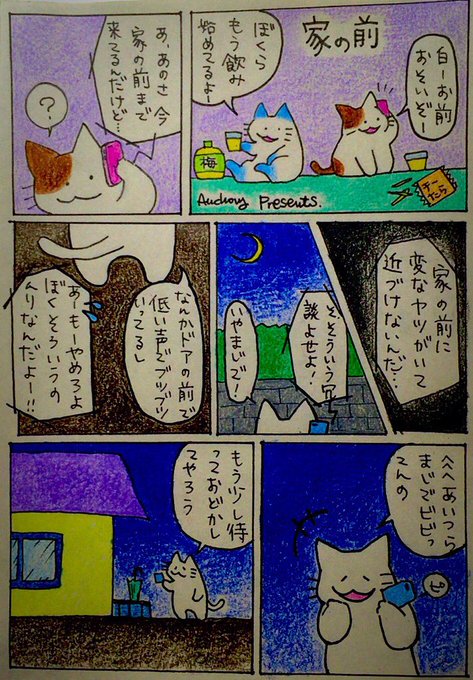 家の前
白ーお前
おそいぞー
ぼくら
もう飲み
始めてるよー
梅
チー
たら
Presents.
あ、あのさ 今
家の前まで
来てるんだけど…
？
家の前に
変なヤツがいて
近づけないんだ…
そ、そういう冗
談よせよ！
いやまじで！
なんかドアの前で
低い声でブツブツ
いってるし
あーもーやめろよ
ぼくそういうの
ムリなんだよー!!
へへあいつら
まじでビビっ
てんの
ピ
もう少し待
っておどかし
てやろう